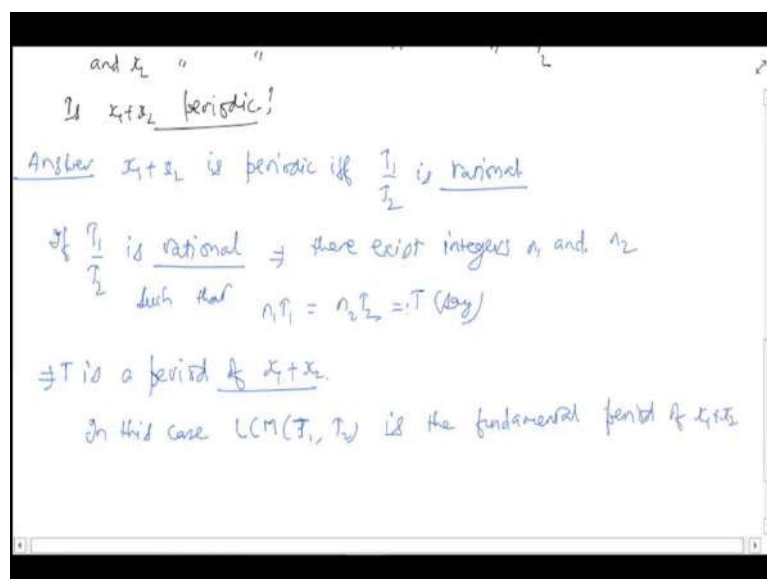 and x₂ " " " " T₂
Is x₁+x₂ periodic?
Answer x₁+x₂ is periodic iff T₁/T₂ is rational
If T₁/T₂ is rational ⇒ there exist integers n₁ and n₂
such that n₁T₁ = n₂T₂ =: T (say)
⇒ T is a period of x₁+x₂.
In this case LCM(T₁, T₂) is the fundamental period of x₁+x₂